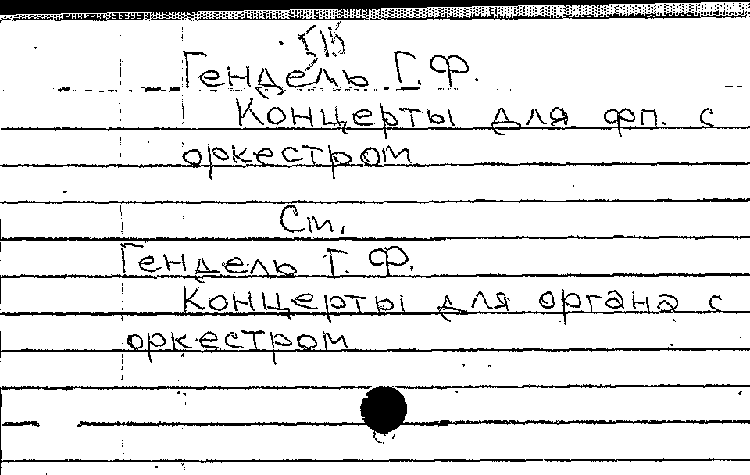 Гендель Г.Ф.
Концерты для фп. с
оркестром
См.
Гендель Г. Ф.
Концерты для органа с
оркестром